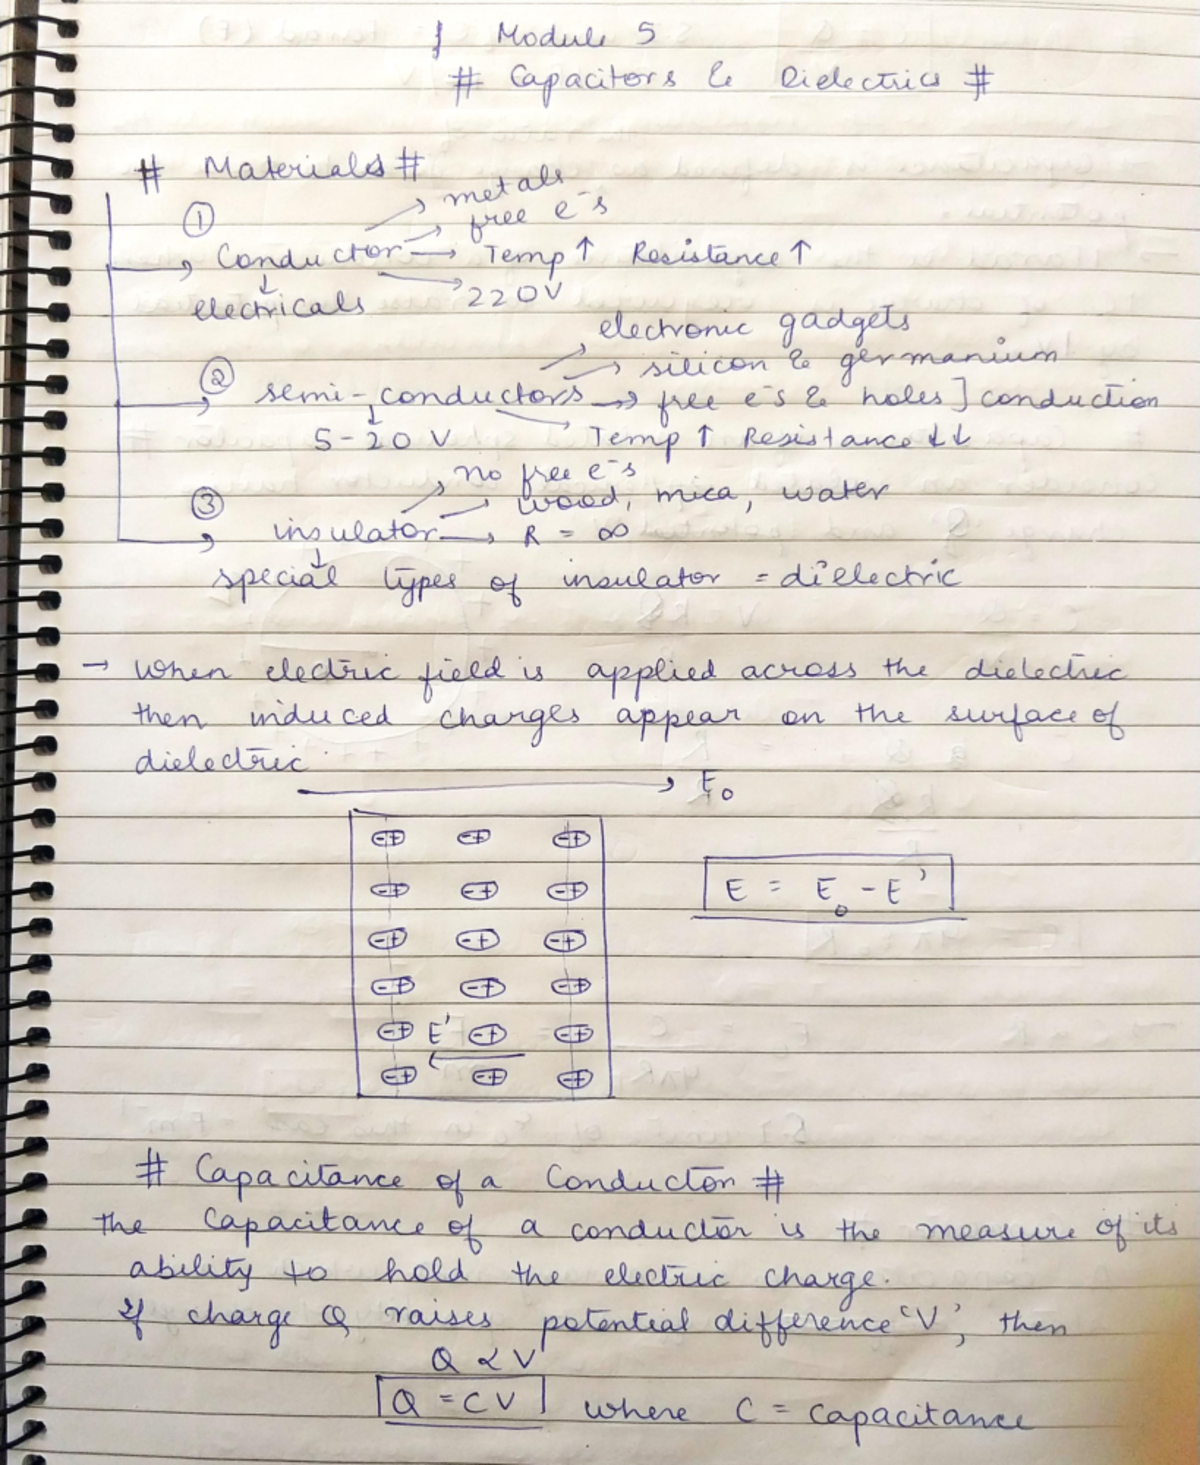 Module 5
# Capacitors & Dielectrics #
# Materials #
① → metals
→ free e⁻s
Conductor → Temp ↑ Resistance ↑
→ 220V
↓
electricals
→ electronic gadgets
② → silicon & germanium
semi-conductors → free e⁻s & holes] conduction
↓
5-20 V → Temp ↑ Resistance ↓↓
→ no free e⁻s
③ → wood, mica, water
insulator → R = ∞
↓
special types of insulator = dielectric
→ when electric field is applied across the dielectric
then induced charges appear on the surface of
dielectric
→ E₀
-+ -+ -+
-+ -+ -+
E = E₀ - E'
-+ -+ -+
-+ -+ -+
-+ E' -+ -+
-+ -+ -+
# Capacitance of a Conductor #
the Capacitance of a conductor is the measure of its
ability to hold the electric charge.
If charge Q raises potential difference 'V', then
Q ∝ V
Q = CV where C = Capacitance